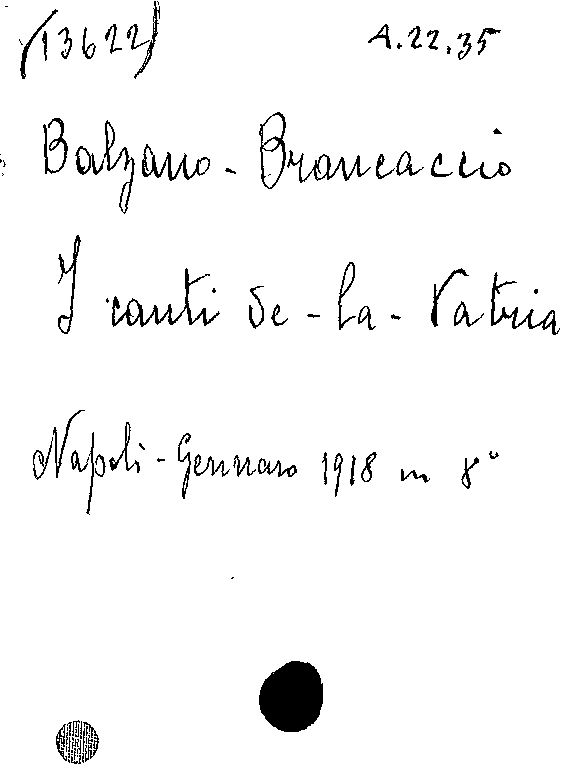 (13622) A.22.35
Balzano - Brancaccio
I canti de - la - Patria
Napoli - Gennaro 1918 in 8°